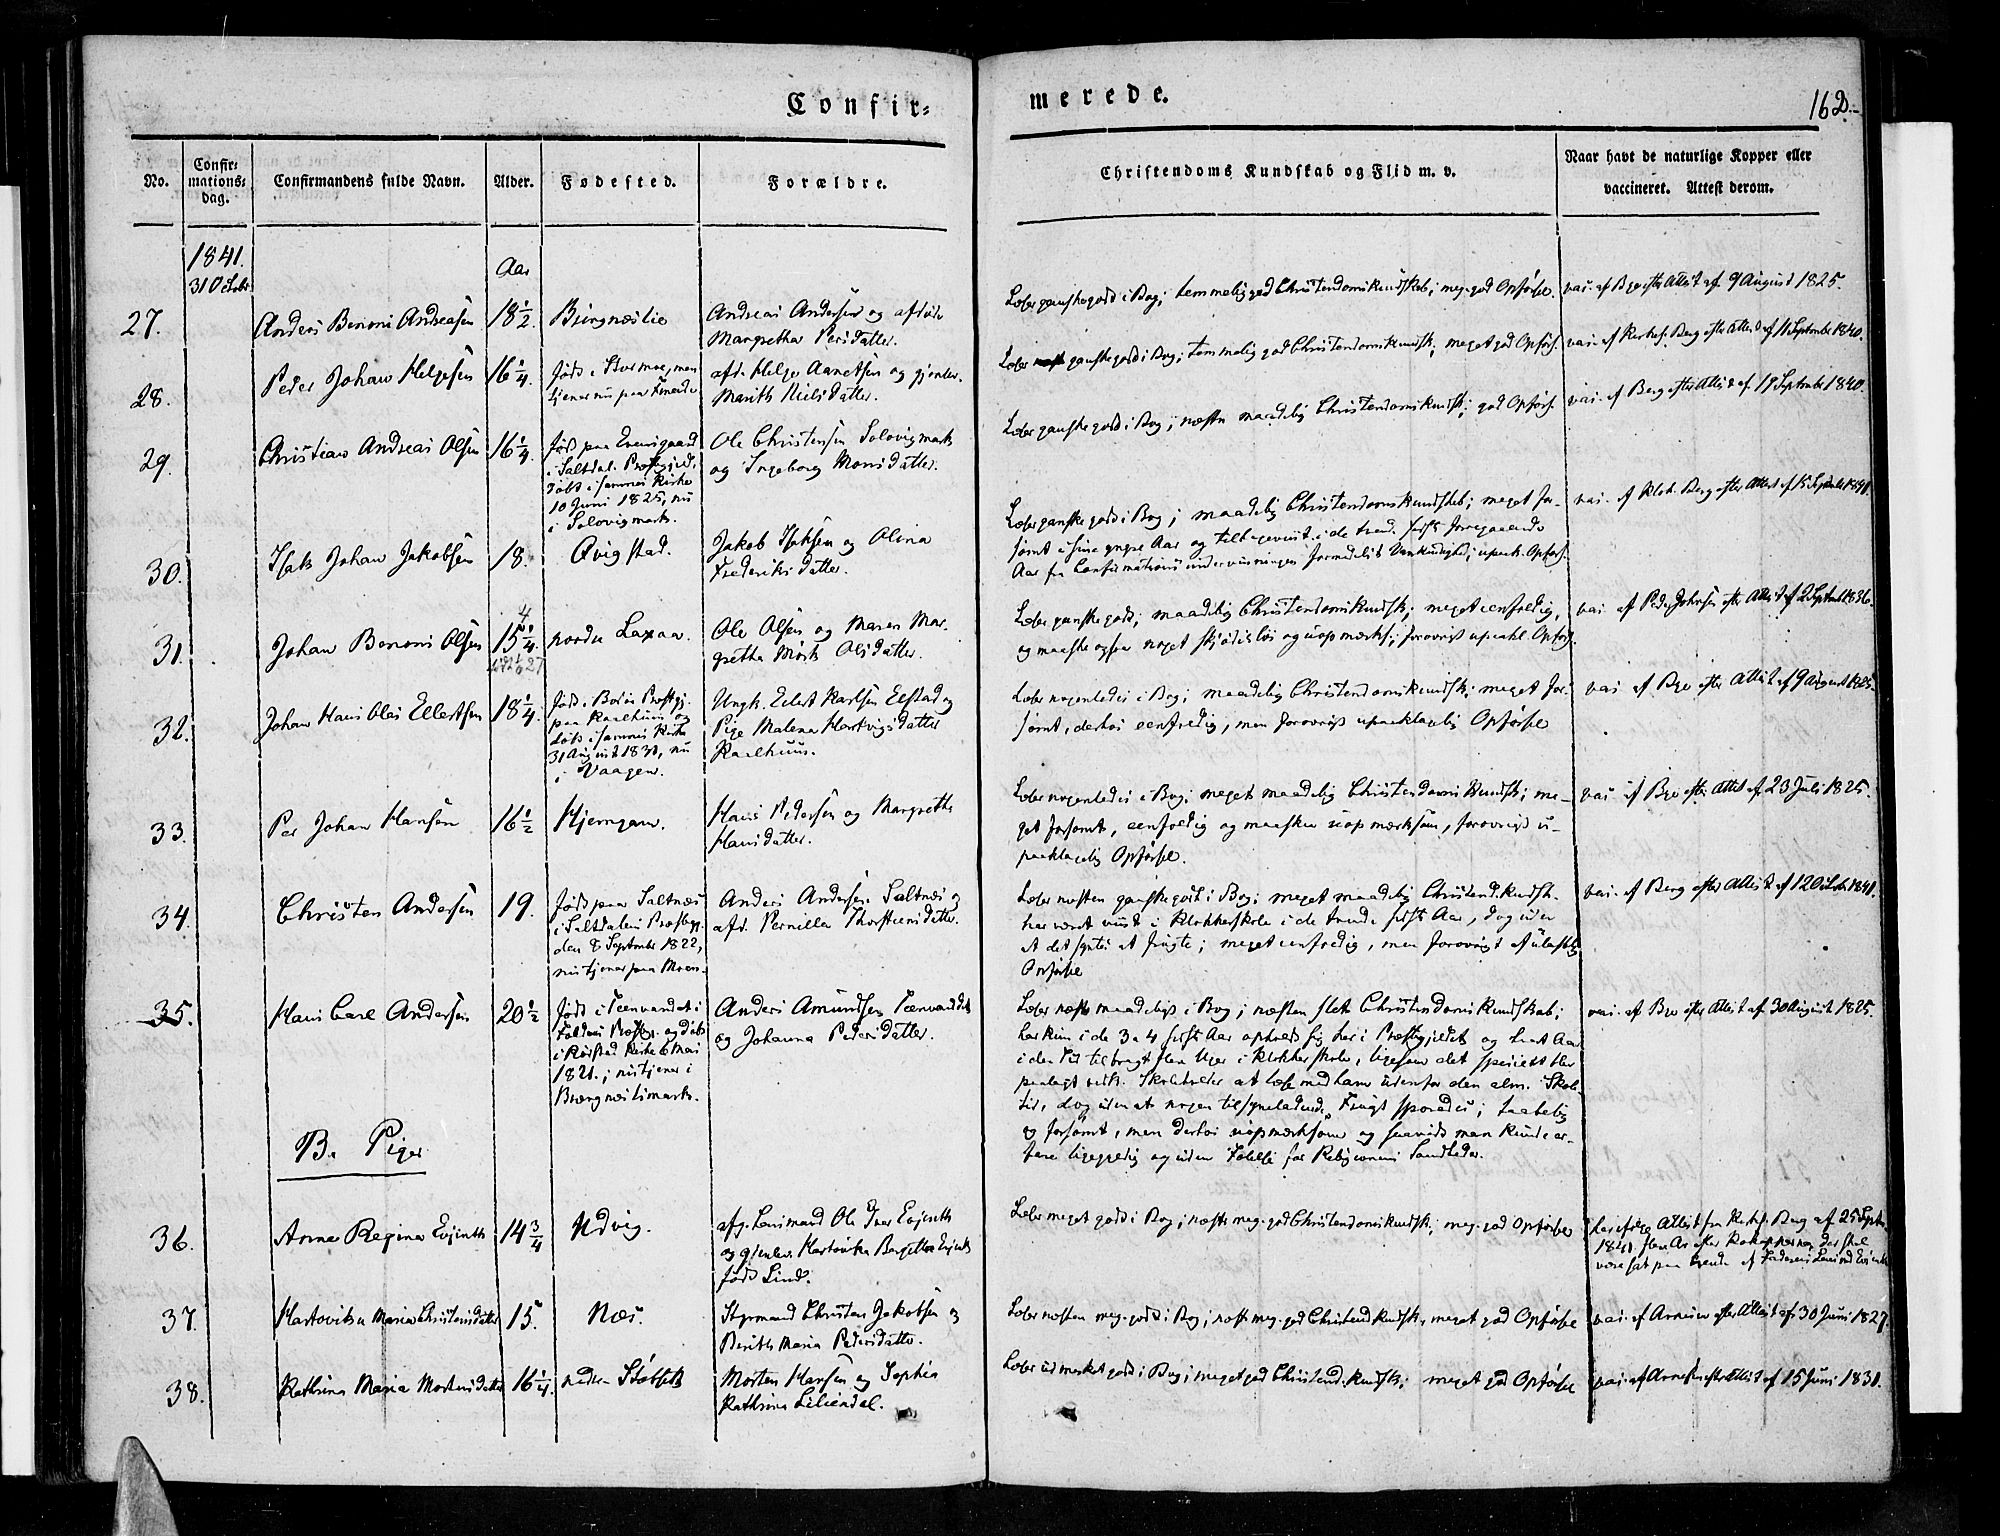 Confir=
merede.
162.
No.
Confir=
mations=
dag.
Confirmandens fulde Navn.
Alder.
Fødested.
Forældre.
Christendoms Kundskab og Flid m. v.
Naar havt de naturlige Kopper eller
vaccineret. Attest derom.
1841.
31 Octobr
Aar
27.
Anders Benoni Andreasen
18 1/2.
Andreas Andersen og afdøde
Margretha Persdatter.
Læser ganske godt i Bog; temmelig god Christendomskundskab; meg. god Opførsel.
vac. af Bye efter Attest af 9 August 1825.
28.
Peder Johan Helgesen
16 1/4.
født i Stormoe, men
tjener nu paa
afd. Helge Arentsen og gjenlev.
Marith Nielsdatter.
Læser ganske godt i Bog; temmelig god Christendomskundsk; meget god Opførs.
vac. af Kirkes. Berg efter Attest af 11 Septembr 1840.
29.
Christian Andreas Olsen
16 1/4.
født paa Evensgaard
i Saltdal. Præstegjeld,
døbt i sammes Kirke
10 Juni 1825, nu
i Solovigmark.
Ole Christensen Solovigmark
og Ingeborg Monsdatter.
Læser ganske godt i Bog; næsten maadelig Christendomskundsk; god Opførs.
vac. af Berg efter Attest af 19 Septembr 1840.
30.
Isak Johan Jakobsen
18.
Qvigstad.
Jakob Isaksen og Olina
Frederiksdatter.
Læser ganske godt i Bog; maadelig Christendomskundskab; meget for-
sømt i sine yngre Aar og tilbageviist i de trende sidst foregaaende
Aar fra Confirmationsundervisningen formedelst Vankundighed; upaakl. Opførs.
vac. af Klok. Berg efter Attest af 15 Septembr 1841.
31.
Johan Benoni Olsen
15 1/4.
nordre Laxaa.
Ole Olsen og Maren Mar-
gretha Mørk Olsdatter.
Læser ganske godt; maadelig Christendomskundsk; meget eenfoldig,
og maaske ogsaa noget skjødesløs og uopmærks; forøvrigt upaakl. Opførs.
vac. af Peder Johnsen efter Attest af 2 Septembr 1836.
32.
Johan Hans Olai Ellertsen
18 1/4.
født i Bodøe Præstgj.
paa Kaalhuus og
døbt i sammes Kirke
31 August 1831, nu
i Vaagen.
Ungk. Eilert Karlsen Elstad og
Pige Malena Hartvigsdatter
Kaalhuus.
Læser nogenledes i Bog; maadelig Christendomskundsk; meget for-
sømt, derhos eenfoldig, men forøvrigt upaaklagelig Opførsel
vac. af Bye efter Attest af 9 August 1825.
33.
Per Johan Hansen
16 1/2
Hjemgam.
Hans Pedersen og Margretha
Hansdatter.
Læser nogenledes i Bog; meget maadelig Christendomskundsk; me-
get forsømt, eenfoldig og maaskee uopmærksom, forøvrigt u-
paaklagelig Opførsel.
vac. af Bye efter Attest af 23 Juli 1825.
34.
Christen Andersen
19.
født paa Saltnæs
i Saltdalens Præstegj.
den 8 Septembr 1822,
nu tjener paa Moen.
Anders Andersen Saltnæs og
afd. Pernilla Thorsteensdatter.
Læser næsten ganske godt i Bog; meget maadelig Christend. kundsk.
har været viist i Klokkerskole i de trende sidste Aar, dog uden
at det syntes at frugte; meget eenfoldig, men forøvrigt ulastelig
Opførsel
vac. af Berg efter Attest af 12 Octobr 1841.
35.
Hans Carl Andersen
20 1/2
født i Teenvandet i
Foldens Præstegj. og døbt
i Rørstad Kirke 6 Mai
1821.; nu tjener i
Anders Amundsen Teenvandet
og Johanna Pedersdatter.
Læser næsten maadeligt i Bog; næsten slet Christendomskundskab;
har kun i de 3 a 4 sidste Aar opholdt sig her i Præstegjeldet og hvert Aar
i den Tid tilbragt flere Uger i Klokkerskole, ligesom det specielt blev
paalagt vedk. Skoleholder at læse med ham udenfor den alm. Skole-
tid, dog uden at nogen tilsyneladende Frugt sporedes; taabelig
og forsømt, men derhos uopmærksom og saavidt man kunde er-
fare ligegyldig og uden Følelse for Religionens Sandheder.
vac. af Bye efter Attest af 30 August 1825.
B. Piger
36.
Anna Regina Evjenth
14 3/4
Udvig.
afg. Lensmand Ole Iver Evjenth
og gjenlev. Hartvikka Bergitta Evjenth
født Lind.
Læser meget godt i Bog; næsten meg. god Christendomskundsk; meg. god Opførsel
har ifølge Attest fra Kirkes. Berg af 25 Septr
1841 flere Ar efter Kokopperne, der skal
være sat paa hende af Faderen Lensmd Evjenth
37.
Hartvikka Maria Christensdatter
15.
Næs.
Styrmand Christen Jakobsen og
Berith Maria Pedersdatter.
Læser næsten meg. godt i Bog; næsten meg. god Christend. kundsk; meget god Opførsel
vac. af Arnesen efter Attest af 30 Juni 1827.
38.
Kathrina Maria Mortensdatter
16 1/4.
nedre Støbsek
Morten Hansen og Sophia
Kathrina Liliendal.
Læser udmærket godt i Bog; meget god Christend. kundsk; meget god Opførsel
vac. af Arnesen efter Attest af 15 Juni 1831.